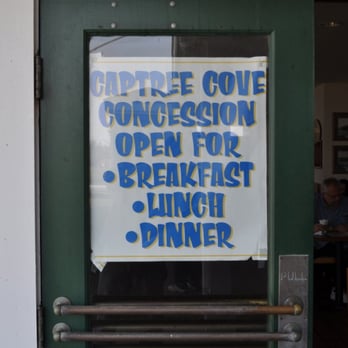 CAPTREE COVE
CONCESSION
OPEN FOR
•BREAKFAST
•LUNCH
•DINNER
PULL